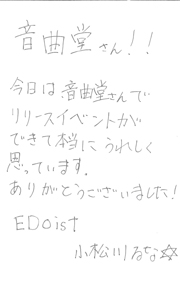 音曲堂さん!!
今日は音曲堂さんで
リリースイベントが
できて本当にうれしく
思っています。
ありがとうございました!
EDoist
小松川るな☆